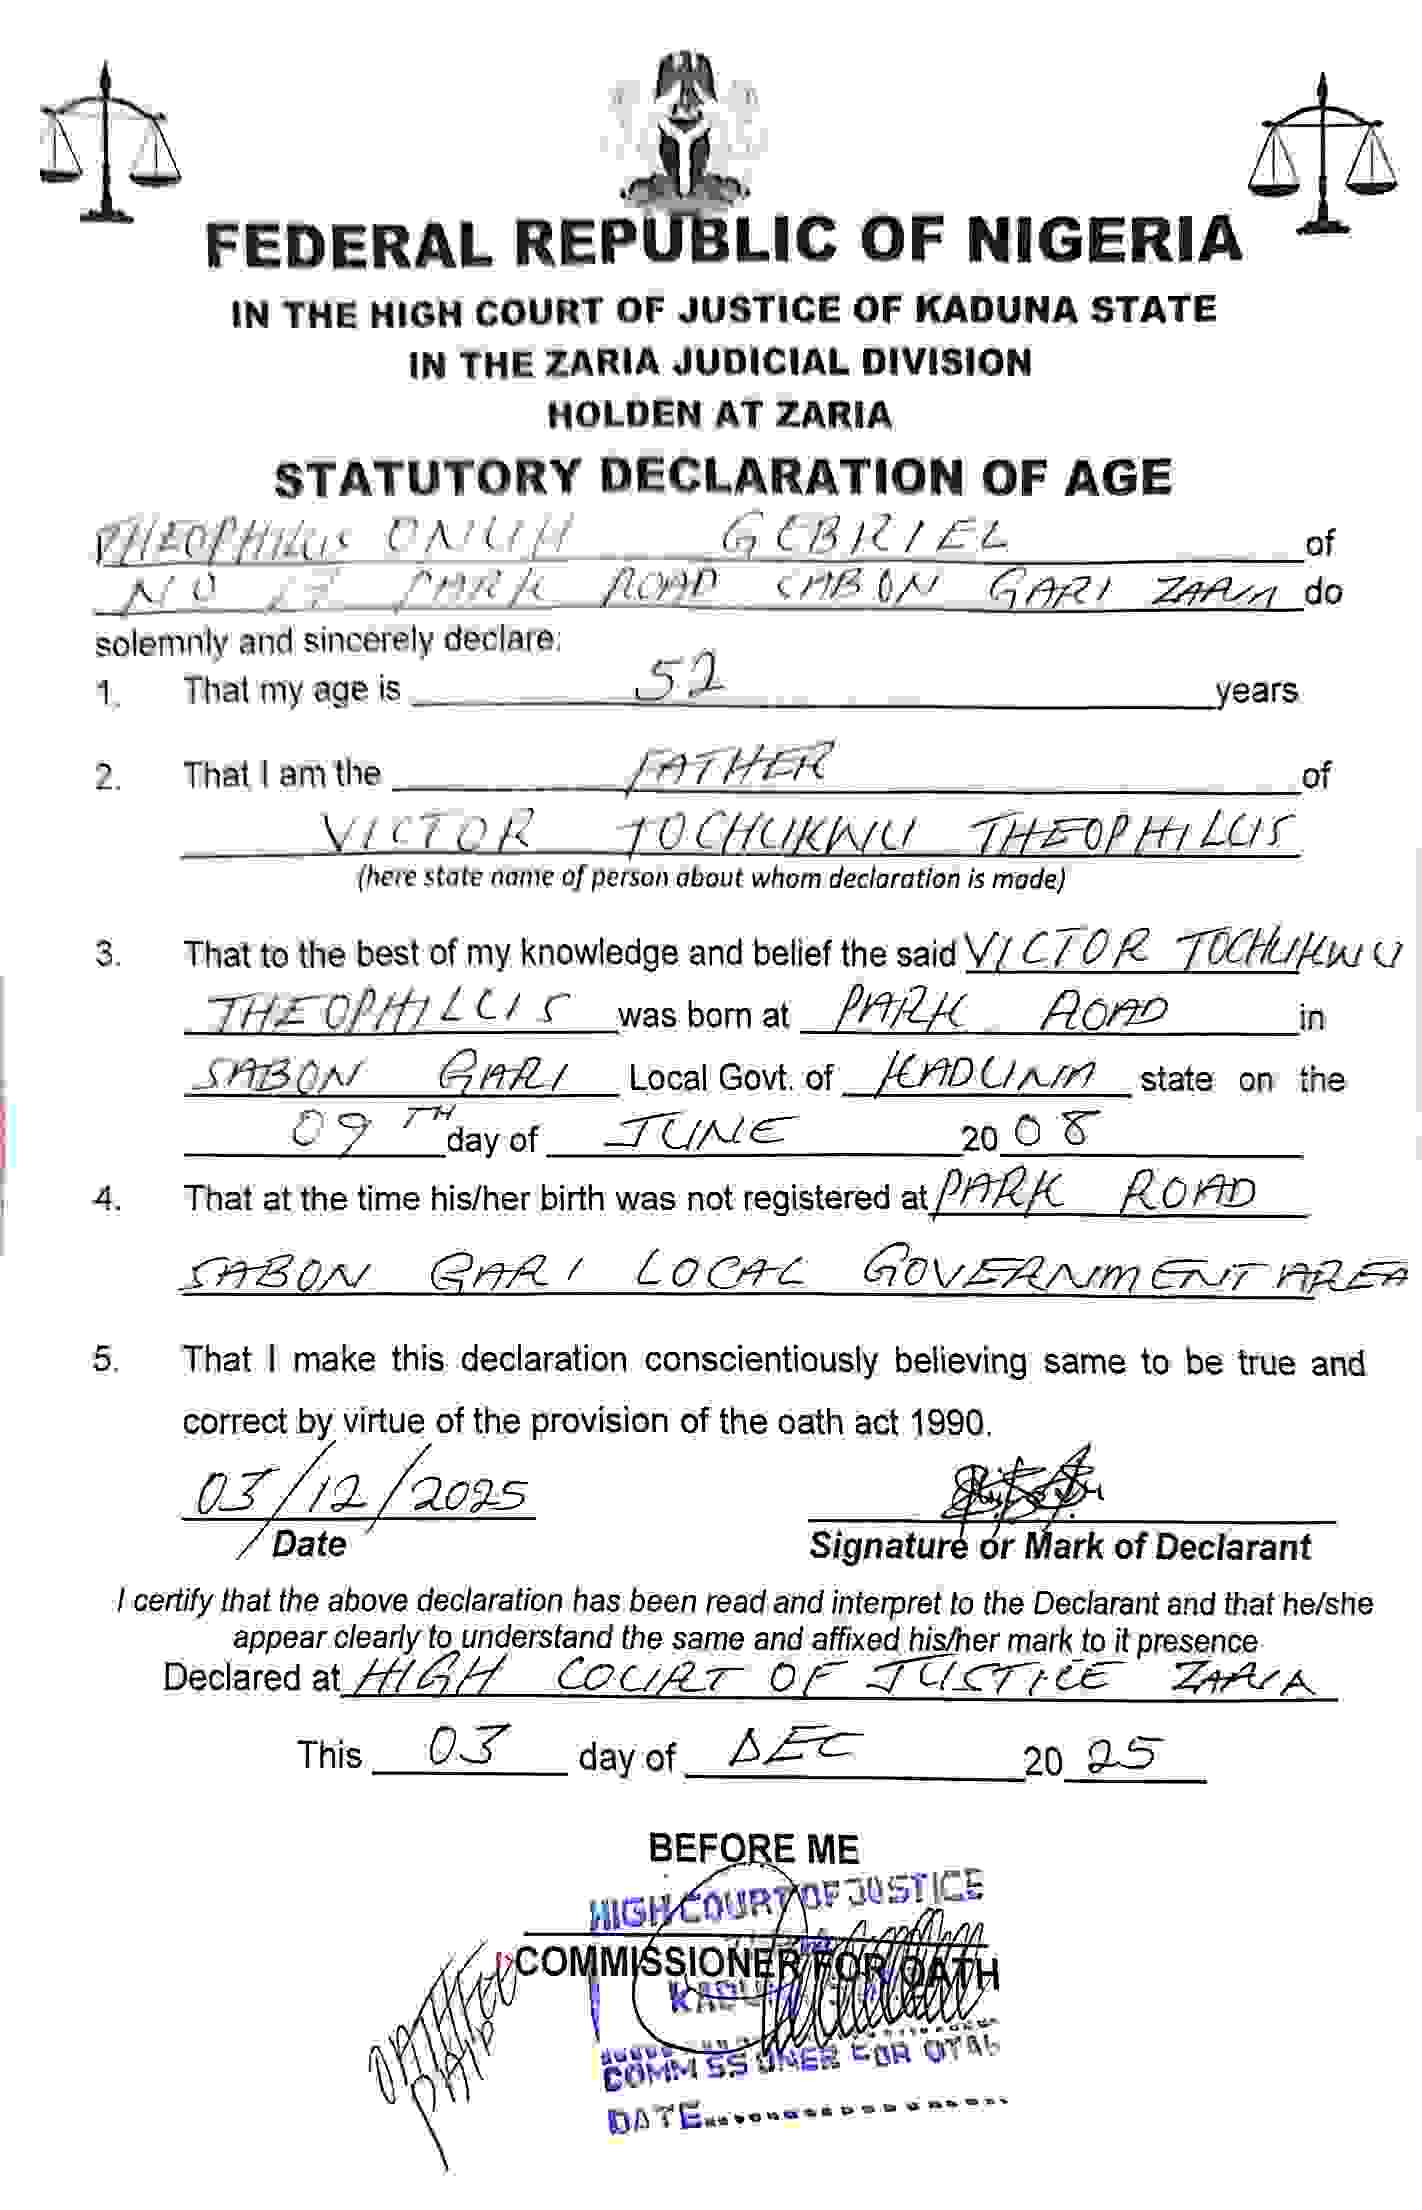 FEDERAL REPUBLIC OF NIGERIA
IN THE HIGH COURT OF JUSTICE OF KADUNA STATE
IN THE ZARIA JUDICIAL DIVISION
HOLDEN AT ZARIA
STATUTORY DECLARATION OF AGE
THEOPHILLUS GEBRIEL of
NO PARK ROAD SABON GARI ZARIA do
solemnly and sincerely declare:
1. That my age is 52 years
2. That I am the FATHER of
VICTOR TOCHUKWU THEOPHILLUS
(here state name of person about whom declaration is made)
3. That to the best of my knowledge and belief the said VICTOR TOCHUKWU
THEOPHILLUS was born at PARK ROAD in
SABON GARI Local Govt. of KADUNA state on the
09TH day of JUNE 2008
4. That at the time his/her birth was not registered at PARK ROAD
SABON GARI LOCAL GOVERNMENT AREA
5. That I make this declaration conscientiously believing same to be true and
correct by virtue of the provision of the oath act 1990.
03/12/2025
Date Signature or Mark of Declarant
I certify that the above declaration has been read and interpret to the Declarant and that he/she
appear clearly to understand the same and affixed his/her mark to it presence
Declared at HIGH COURT OF JUSTICE ZARIA
This 03 day of DEC 2025
BEFORE ME
HIGH COURT OF JUSTICE
COMMISSIONER FOR OATH
COMMISSIONER FOR
DATE
OATH FEE
PAID